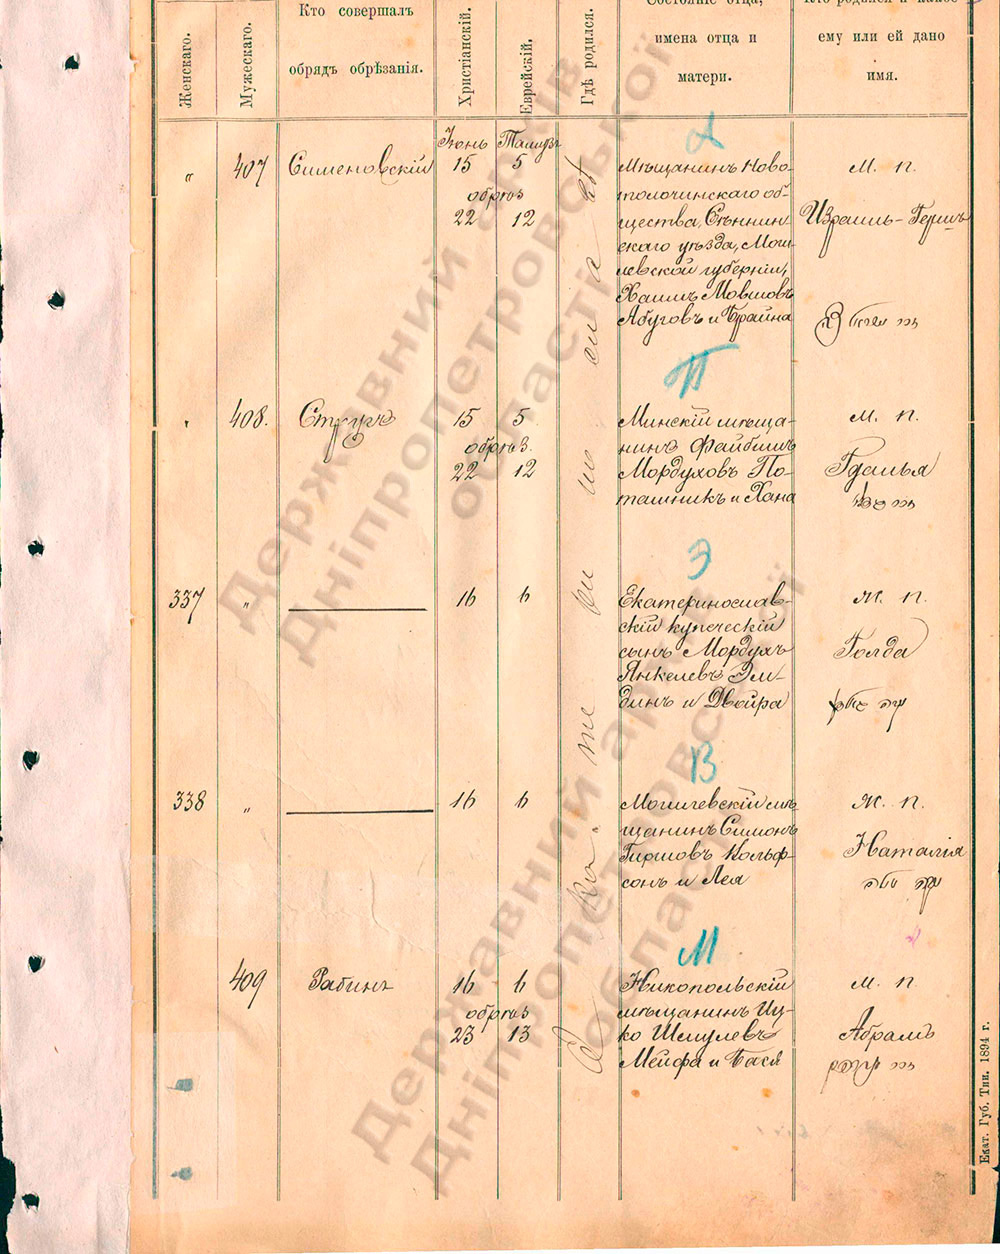 Женскаго.
Мужескаго.
Кто совершалъ
обрядъ обрѣзанія.
Христіанскій.
Еврейскій.
Гдѣ родился.
Состояніе отца,
имена отца и
матери.
Кто родился и какое
ему или ей дано
имя.
Іюнь Тамузъ
" 407 Сименовскій 15 5
обрѣз
22 12
Мѣщанинъ Ново-
толочинскаго об-
щества, Сѣннин
скаго уѣзда, Моги
левской губерніи,
Хаимъ Мовшовъ
Абуговъ и Брайна
М. п.
Израиль-Гершъ
408. Стругъ 15 5
обрѣз.
22 12
П
Минскій мѣща-
нинъ Файбишъ
Мордуховъ По-
ташникъ и Хана
М. п.
Гдалья
337 " 16 6
Э
Екатеринослав-
скій купеческій
сынъ Мордухъ
Янкелевъ Эли-
динъ и Двейра
Ж. п.
Голда
338 " 16 6
В
Могилевскій мѣ
щанинъ Симонъ
Гиршовъ Вольф-
сонъ и Лея
Ж. п.
Наталія
409 Рабинъ 16 6
обрѣз
23 13
М
Никопольскій
мѣщанинъ Иц-
ко Шмулевъ
Мейфа и Бася
М. п.
Абрамъ
Екат. Губ. Тип. 1894 г.
Державний архів
Дніпропетровської
області
Державний архів
Дніпропетровської
області